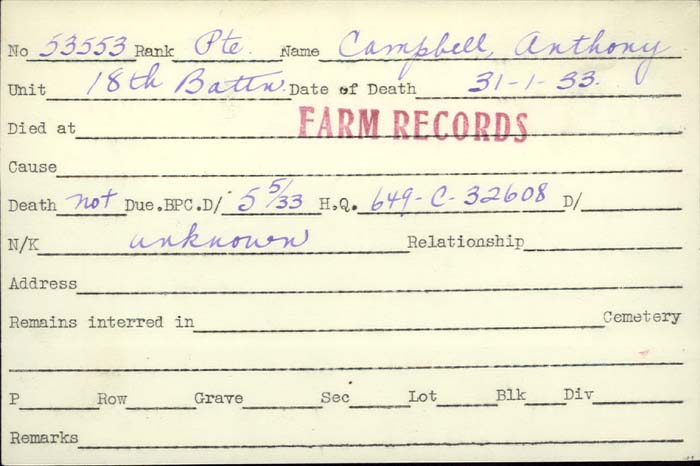 No 53553 Rank Pte. Name Campbell, Anthony
Unit 18th Battn. Date of Death 31-1-33.
Died at FARM RECORDS
Cause
Death not Due. BPC.D/ 5 5/33 H.Q. 649-C-32608 D/
N/K unknown Relationship
Address
Remains interred in Cemetery
P Row Grave Sec Lot Blk Div
Remarks